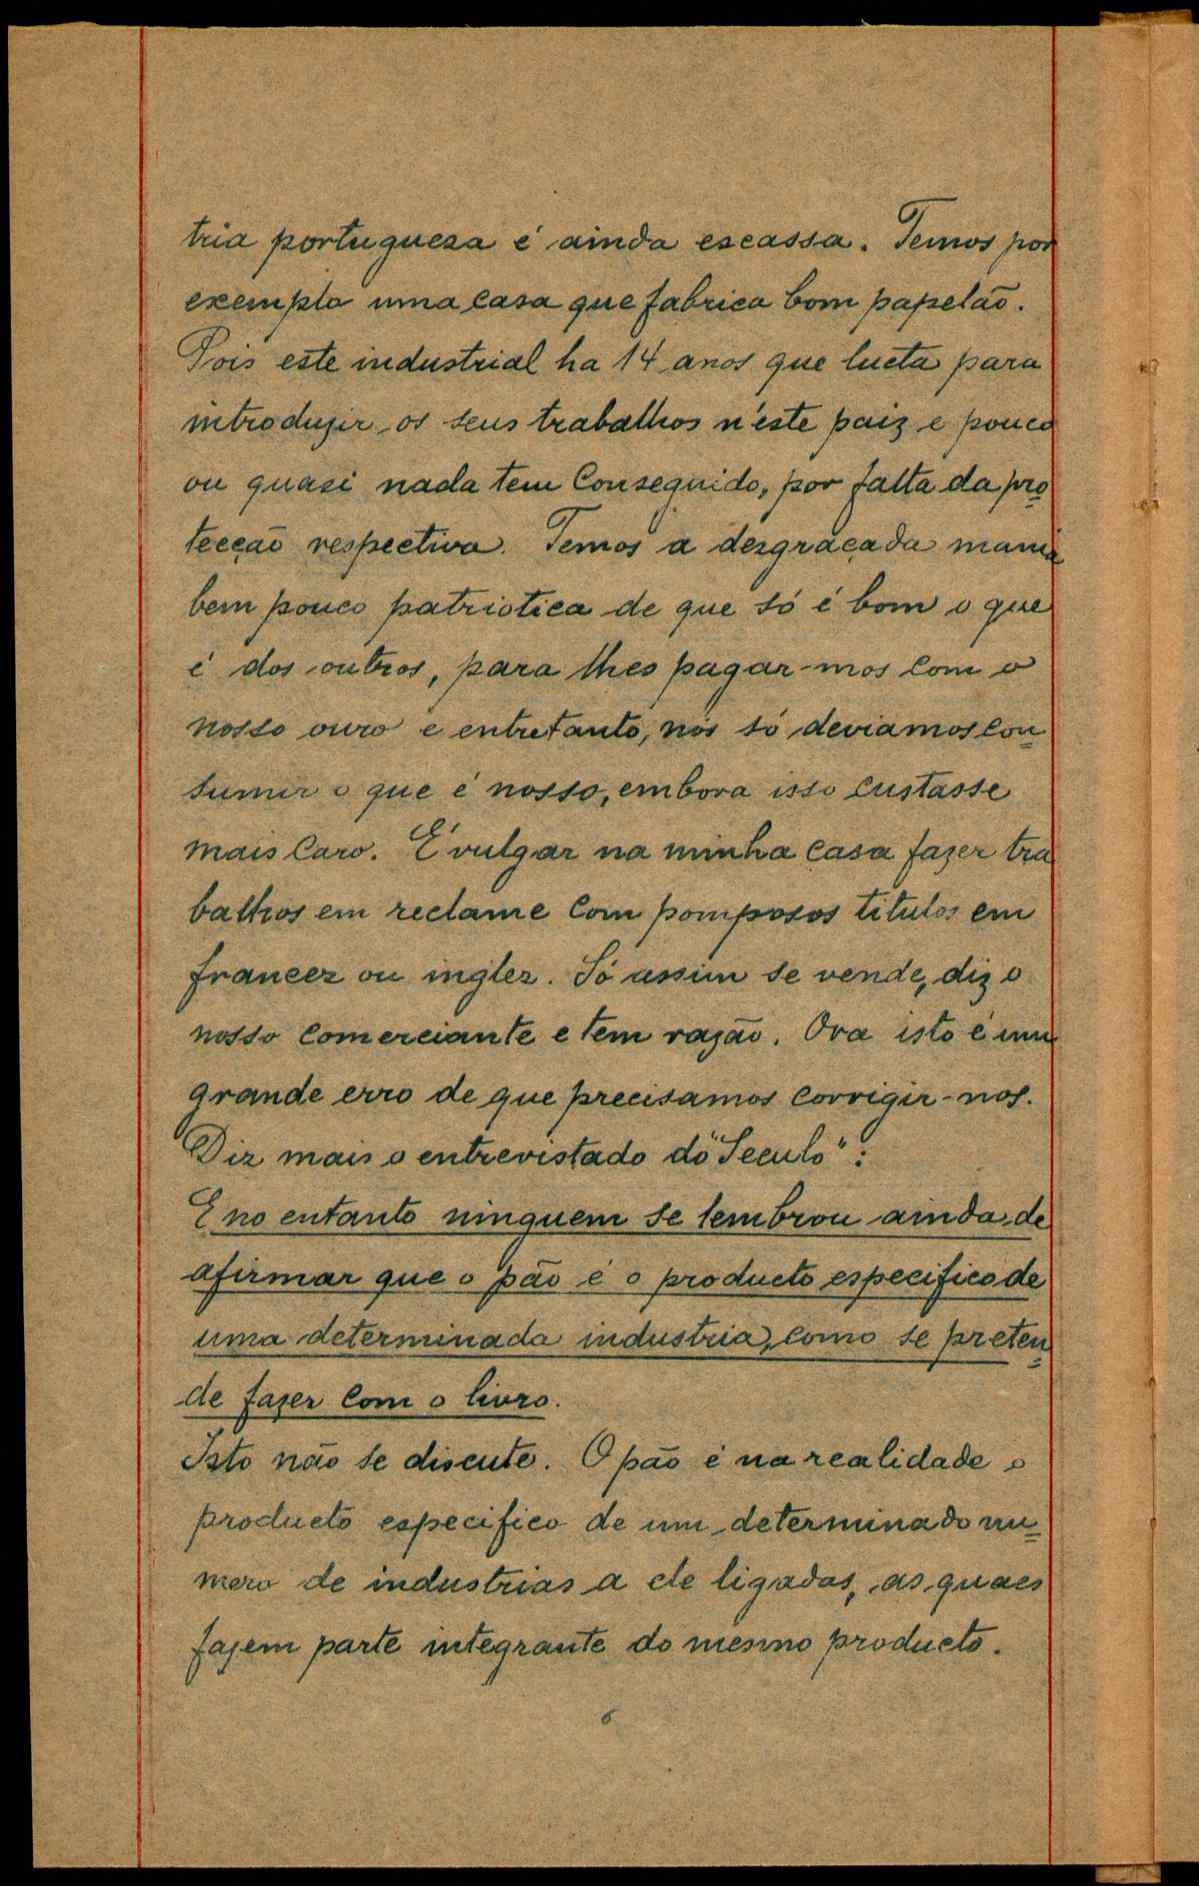 tria portugueza é ainda escassa. Temos por
exemplo uma casa que fabrica bom papelão.
Pois este industrial ha 14 anos que lucta para
introduzir os seus trabalhos n'este paiz e pouco
ou quasi nada tem conseguido, por falta da pro=
tecção respectiva. Temos a desgraçada mania
bem pouco patriotica de que só é bom o que
é dos outros, para lhes pagar-mos com o
nosso ouro e entretanto, nós só deviamos con=
sumir o que é nosso, embora isso custasse
mais caro. É vulgar na minha casa fazer tra
balhos em reclame com pomposos titulos em
francez ou inglez. Só assim se vende, diz o
nosso comerciante e tem razão. Ora isto é um
grande erro de que precisamos corrigir-nos.
Diz mais o entrevistado do "Seculo":
E no entanto ninguem se lembrou ainda de
afirmar que o pão é o producto especifico de
uma determinada industria, como se preten=
de fazer com o livro.
Isto não se discute. O pão é na realidade o
producto especifico de um determinado nu=
mero de industrias a ele ligadas, as quaes
fazem parte integrante do mesmo producto.
6